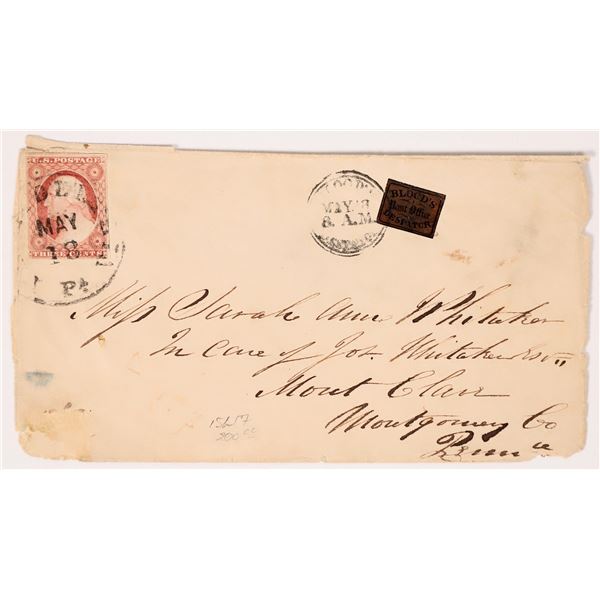 U.S. POSTAGE
MAY
18
Pa
THREE CENTS
BLOOD'S
MAY 18
8. A.M
BLOOD'S
Post Office
DESPATCH
Miss Sarah Ann Whitaker
In Care of Jos. Whitaker Esq
Mont Clare
Montgomery Co
Penn a
15L17
200